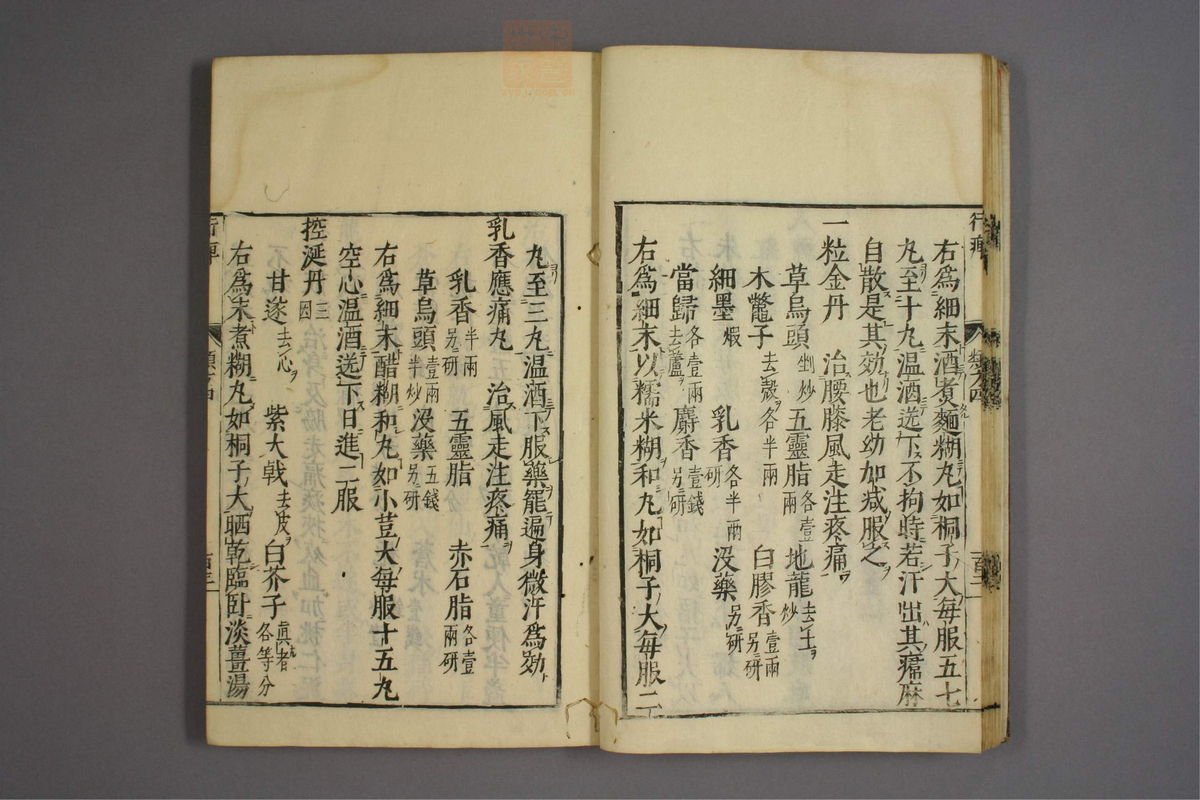 行痺
右爲細末酒煮麵糊丸如桐子大每服五七
丸至十丸温酒送下不拘時若汗出其癗麻
自散是其効也老幼加减服之
一粒金丹 治腰膝風走注疼痛
草烏頭 剉炒 五靈脂 各壹兩 地龍 去土炒
木鼈子 去殼各半兩 白膠香 壹兩另研
細墨 煆 乳香 各半兩研 沒藥 另研
當歸 各壹兩去蘆 麝香 壹錢另研
右爲細末以糯米糊和丸如桐子大每服二
丸至三丸温酒下服藥罷遍身微汗爲効
乳香應痛丸 治風走注疼痛
乳香 半兩另研 五靈脂 赤石脂 各壹兩研
草烏頭 壹兩半炒 沒藥 五錢另研
右爲細末醋糊和丸如小荳大每服十五丸
空心温酒送下日進二服
控涎丹 三因
甘遂 去心 紫大戟 去皮 白芥子 眞者各等分
右爲末煮糊丸如桐子大晒乾臨卧淡薑湯